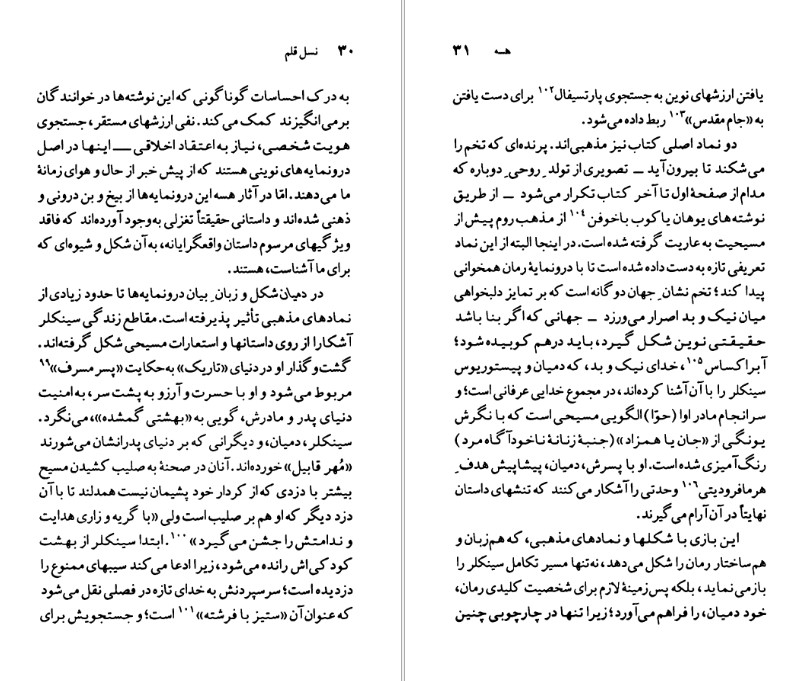 ۳۰ نسل قلم
به درک احساسات گوناگونی که این نوشته‌ها در خوانندگان
برمی‌انگیزند کمک می‌کند. نفی ارزشهای مستقر، جستجوی
هویت شخصی، نیاز به اعتقاد اخلاقی ــ اینها در اصل
درونمایه‌های نوینی هستند که از پیش خبر از حال و هوای زمانهٔ
ما می‌دهند. امّا در آثار هسه این درونمایه‌ها از بیخ و بن درونی و
ذهنی شده‌اند و داستانی حقیقتاً تغزلی به‌وجود آورده‌اند که فاقد
ویژگیهای مرسوم داستان واقعگرایانه، به‌آن شکل و شیوه‌ای که
برای ما آشناست، هستند.
در دمیان شکل و زبانِ بیان درونمایه‌ها تا حدود زیادی از
نمادهای مذهبی تأثیر پذیرفته است. مقاطع زندگی سینکلر
آشکارا از روی داستانها و استعارات مسیحی شکل گرفته‌اند.
گشت‌وگذار او در دنیای «تاریک» به‌حکایت «پسر مسرف»۹۹
مربوط می‌شود و او با حسرت و آرزو به پشت سر، به‌امنیت
دنیای پدر و مادرش، گویی به «بهشتی گمشده»، می‌نگرد.
سینکلر، دمیان، و دیگرانی که بر دنیای پدرانشان می‌شورند
«مُهر قابیل» خورده‌اند. آنان در صحنهٔ به صلیب کشیدن مسیح
بیشتر با دزدی که از کردار خود پشیمان نیست همدلند تا با آن
دزد دیگر که او هم بر صلیب است ولی «با گریه و زاری هدایت
و ندامتش را جشن می‌گیرد»۱۰۰. ابتدا سینکلر از بهشت
کودکی‌اش رانده می‌شود، زیرا ادعا می‌کند سیبهای ممنوع را
دزدیده است؛ سرسپردنش به خدای تازه در فصلی نقل می‌شود
که عنوان آن «ستیز با فرشته»۱۰۱ است؛ و جستجویش برای
هسه ۳۱
یافتن ارزشهای نوین به جستجوی پارتسیفال۱۰۲ برای دست یافتن
به «جام مقدس»۱۰۳ ربط داده می‌شود.
دو نماد اصلی کتاب نیز مذهبی‌اند. پرنده‌ای که تخم را
می‌شکند تا بیرون آید ــ تصویری از تولدِ روحیِ دوباره که
مدام از صفحهٔ اول تا آخر کتاب تکرار می‌شود ــ از طریق
نوشته‌های یوهان یاکوب باخوفن۱۰۴ از مذهب روم پیش از
مسیحیت به عاریت گرفته شده است. در اینجا البته از این نماد
تعریفی تازه به دست داده شده است تا با درونمایهٔ رمان همخوانی
پیدا کند؛ تخم نشانِ جهان دوگانه است که بر تمایز دلبخواهی
میان نیک و بد اصرار می‌ورزد ــ جهانی که اگر بنا باشد
حقیقتی نوین شکل گیرد، باید درهم کوبیده شود؛
آبراکساس۱۰۵، خدای نیک و بد، که دمیان و پیستوریوس
سینکلر را با آن آشنا کرده‌اند، در مجموع خدایی عرفانی است؛ و
سرانجام مادر اوا (حوّا) الگویی مسیحی است که با نگرش
یونگی از «جان یا همزاد» (جنبهٔ زنانهٔ ناخودآگاه مرد)
رنگ‌آمیزی شده است. او با پسرش، دمیان، پیشاپیش هدفِ
هرمافرودیتی۱۰۶ وحدتی را آشکار می‌کنند که تنشهای داستان
نهایتاً در آن آرام می‌گیرند.
این بازی با شکلها و نمادهای مذهبی، که هم‌زبان و
هم‌ساختار رمان را شکل می‌دهد، نه‌تنها مسیر تکامل سینکلر را
بازمی‌نماید، بلکه پس‌زمینهٔ لازم برای شخصیت کلیدی رمان،
خود دمیان، را فراهم می‌آورد؛ زیرا تنها در چارچوبی چنین